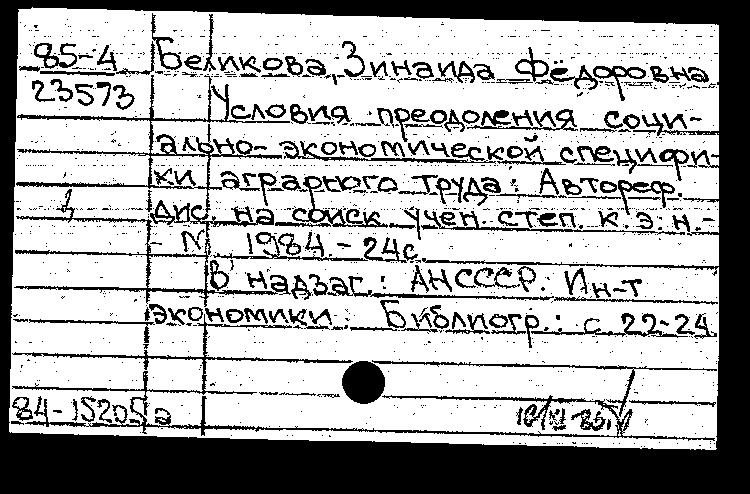 85-4 Беликова, Зинаида Фёдоровна
23573 Условия преодоления соци-
ально-экономической специфи-
ки аграрного труда: Автореф.
дис. на соиск. учен. степ. к.э.н.-
- М., 1984.-24с.
В надзаг.: АНСССР. Ин-т
экономики. Библиогр.: с. 22-24.
84-15205а